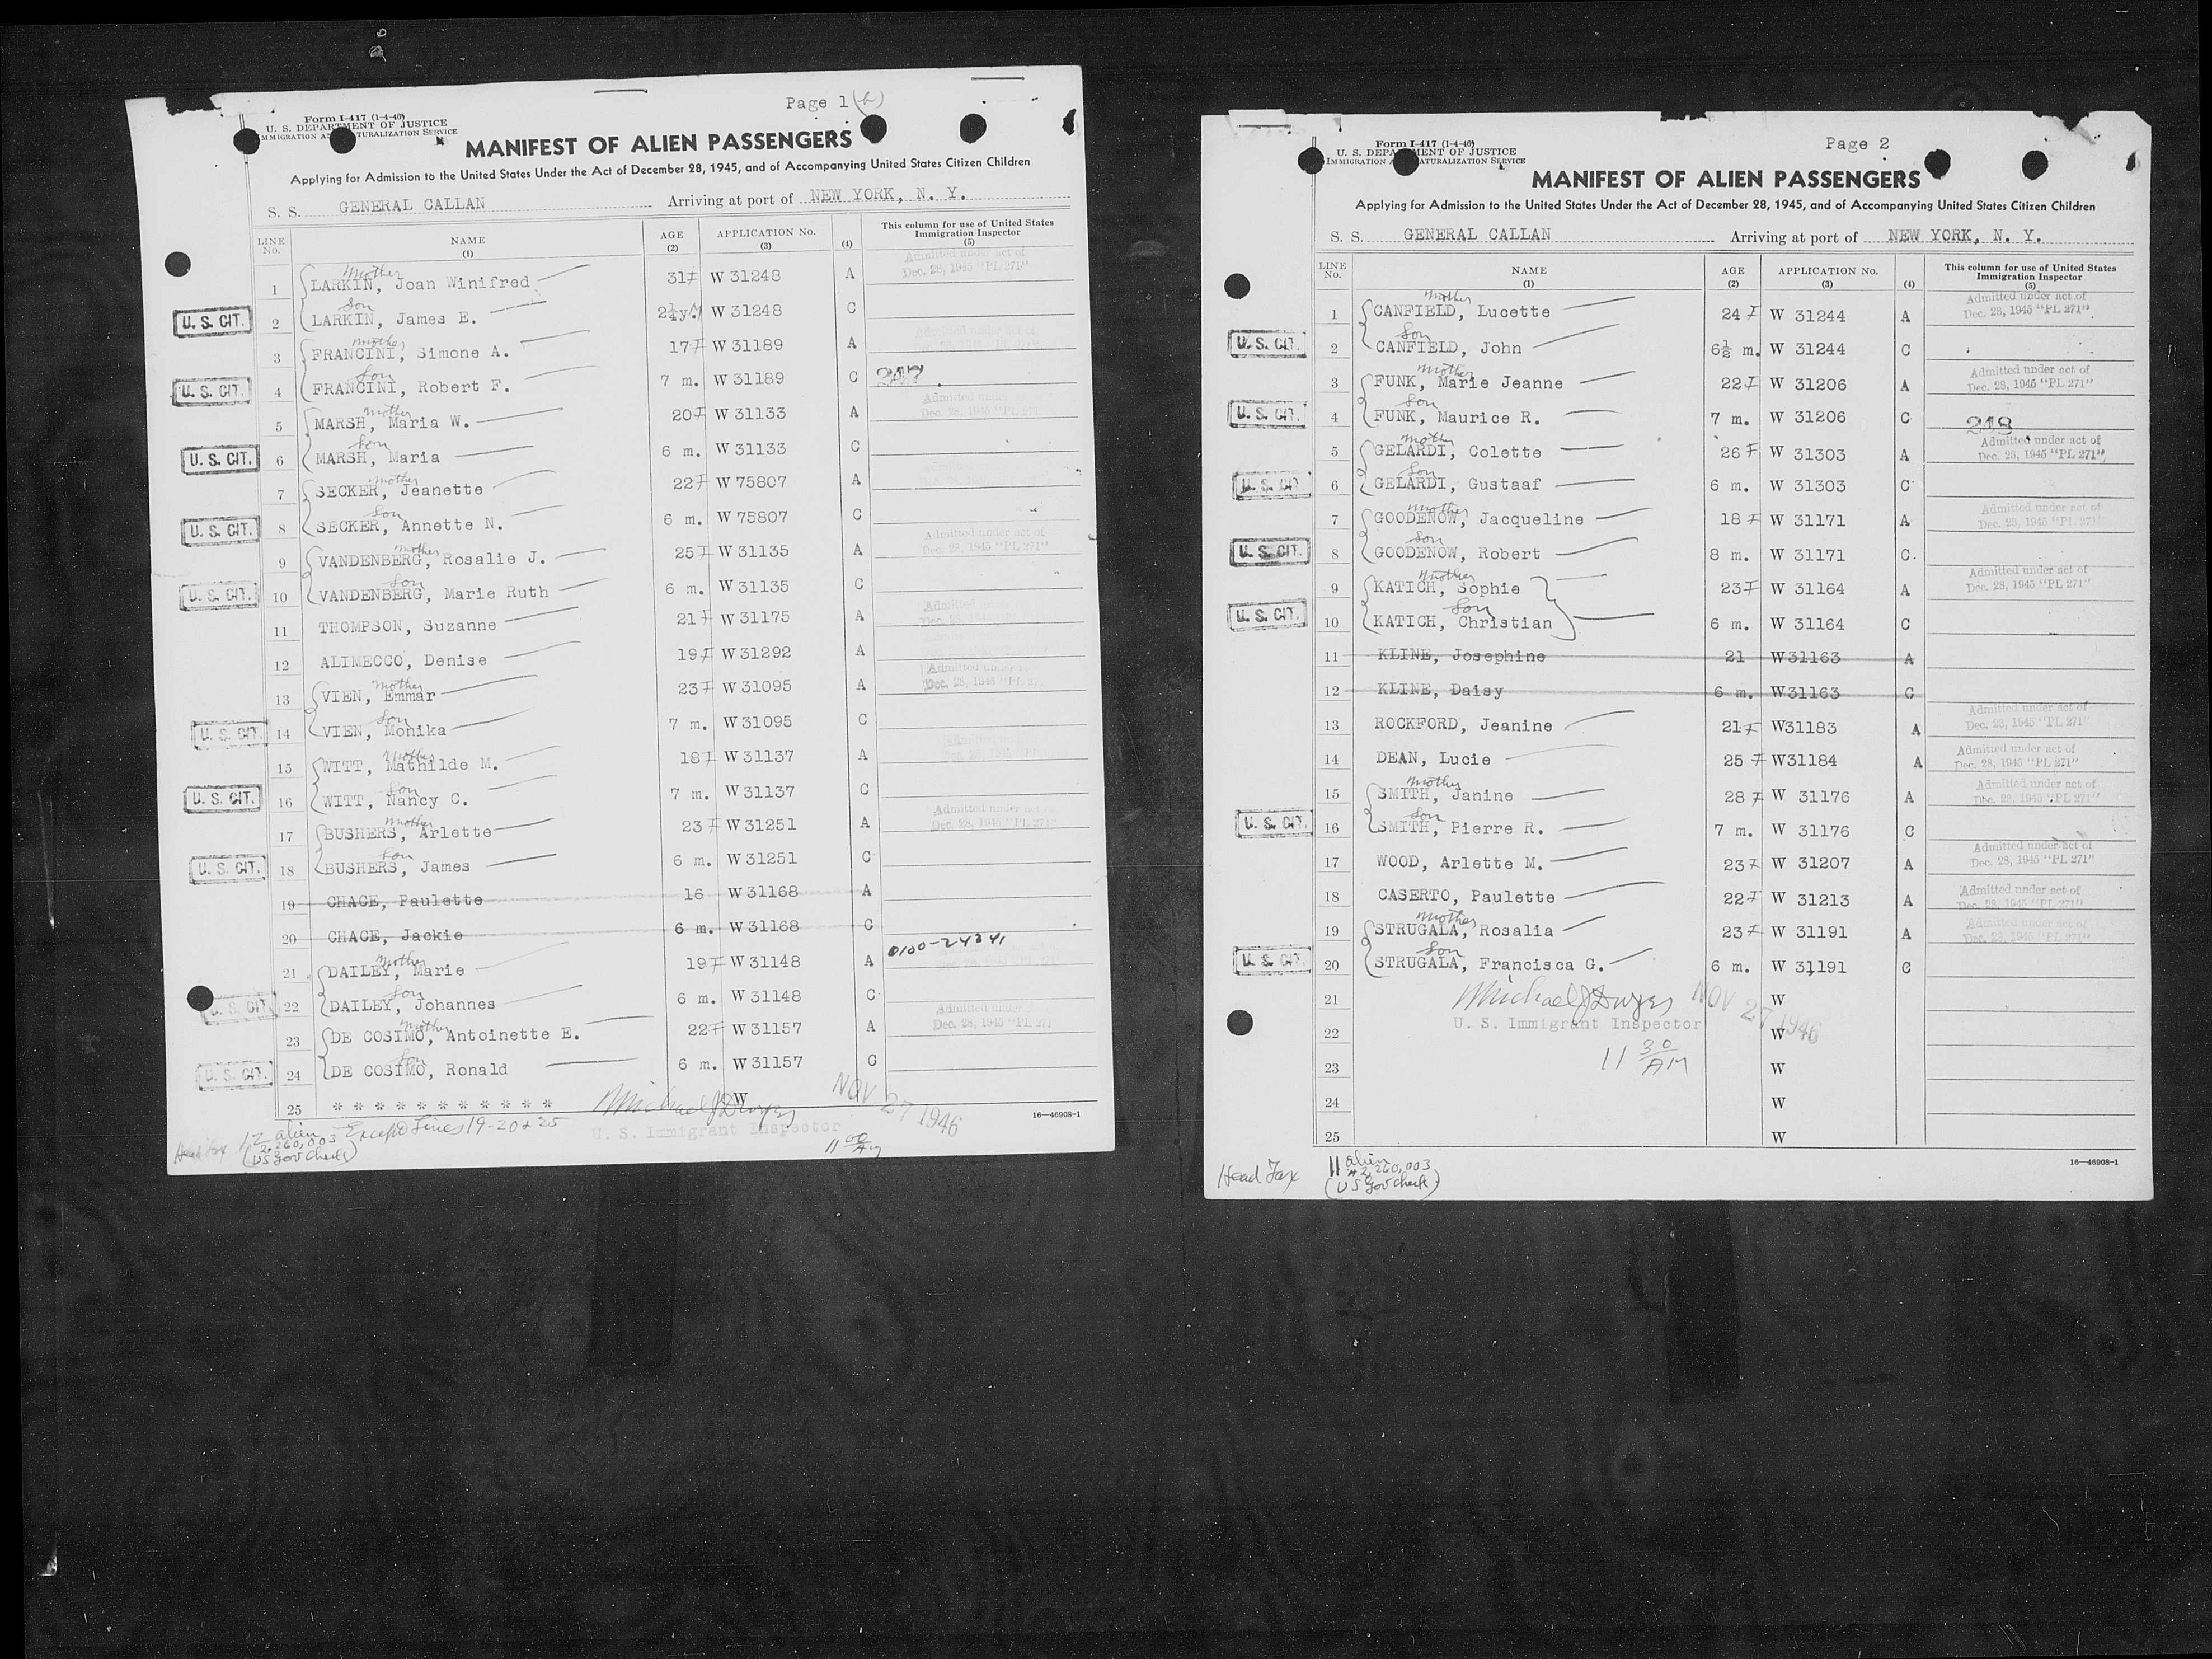 Page 1 (b)
Form I-417 (1-4-46)
U. S. DEPARTMENT OF JUSTICE
IMMIGRATION AND NATURALIZATION SERVICE
MANIFEST OF ALIEN PASSENGERS
Applying for Admission to the United States Under the Act of December 28, 1945, and of Accompanying United States Citizen Children
S. S. GENERAL CALLAN Arriving at port of NEW YORK, N. Y.
LINE No. NAME (1) AGE (2) APPLICATION No. (3) (4) This column for use of United States Immigration Inspector (5)
Admitted under act of
Dec. 28, 1945 "PL 271"
Mother
1 LARKIN, Joan Winifred 31 F W 31248 A
Son
U. S. CIT. 2 LARKIN, James E. 2½y.M W 31248 C
Admitted under act of
Mother
3 FRANCINI, Simone A. 17 F W 31189 A
Son
U. S. CIT. 4 FRANCINI, Robert F. 7 m. W 31189 C 247
Admitted under
Dec. 28, 1945 "PL 271"
Mother
5 MARSH, Maria W. 20 F W 31133 A
Son
U. S. CIT. 6 MARSH, Maria 6 m. W 31133 C
Mother
7 SECKER, Jeanette 22 F W 75807 A
Son
U. S. CIT. 8 SECKER, Annette N. 6 m. W 75807 C
Admitted under act of
Dec. 28, 1945 "PL 271"
Mother
9 VANDENBERG, Rosalie J. 25 F W 31135 A
Son
U. S. CIT. 10 VANDENBERG, Marie Ruth 6 m. W 31135 C
11 THOMPSON, Suzanne 21 F W 31175 A
12 ALIMECCO, Denise 19 F W 31292 A
Admitted under
Dec. 28, 1945 "PL
Mother
13 VIEN, Emmar 23 F W 31095 A
Son
U. S. CIT. 14 VIEN, Monika 7 m. W 31095 C
Mother
15 WITT, Mathilde M. 18 F W 31137 A
Son
U. S. CIT. 16 WITT, Nancy C. 7 m. W 31137 C
Admitted under act of
Dec. 28, 1945 "PL 271"
Mother
17 BUSHERS, Arlette 23 F W 31251 A
Son
U. S. CIT. 18 BUSHERS, James 6 m. W 31251 C
19 CHACE, Paulette 16 W 31168 A
20 CHACE, Jackie 6 m. W 31168 C
0100-24241
Mother
21 DAILEY, Marie 19 F W 31148 A
Son
U. S. CIT. 22 DAILEY, Johannes 6 m. W 31148 C
Admitted under
Dec. 28, 1945 "PL 271
Mother
23 DE COSIMO, Antoinette E. 22 F W 31157 A
Son
U. S. CIT. 24 DE COSIMO, Ronald 6 m. W 31157 C
25 * * * * * * * * * * * W
Michael J Dwyer NOV 27 1946
U. S. Immigrant Inspector
11 00 AM
16—46908-1
Head Tax 12 alien Except Lines 19-20 & 25
2,260,003
(US Gov Check)
Page 2
Form I-417 (1-4-46)
U. S. DEPARTMENT OF JUSTICE
IMMIGRATION AND NATURALIZATION SERVICE
MANIFEST OF ALIEN PASSENGERS
Applying for Admission to the United States Under the Act of December 28, 1945, and of Accompanying United States Citizen Children
S. S. GENERAL CALLAN Arriving at port of NEW YORK, N. Y.
LINE No. NAME (1) AGE (2) APPLICATION No. (3) (4) This column for use of United States Immigration Inspector (5)
Admitted under act of
Dec. 28, 1945 "PL 271"
Mother
1 CANFIELD, Lucette 24 F W 31244 A
Son
U. S. CIT. 2 CANFIELD, John 6½ m. W 31244 C
Admitted under act of
Dec. 28, 1945 "PL 271"
Mother
3 FUNK, Marie Jeanne 22 F W 31206 A
Son
U. S. CIT. 4 FUNK, Maurice R. 7 m. W 31206 C 248
Admitted under act of
Dec. 28, 1945 "PL 271"
Mother
5 GELARDI, Colette 26 F W 31303 A
Son
U. S. CIT. 6 GELARDI, Gustaaf 6 m. W 31303 C
Admitted under act of
Dec. 28, 1945 "PL 271"
Mother
7 GOODENOW, Jacqueline 18 F W 31171 A
Son
U. S. CIT. 8 GOODENOW, Robert 8 m. W 31171 C.
Admitted under act of
Dec. 28, 1945 "PL 271"
Mother
9 KATICH, Sophie 23 F W 31164 A
Son
U. S. CIT. 10 KATICH, Christian 6 m. W 31164 C
11 KLINE, Josephine 21 W31163 A
12 KLINE, Daisy 6 m. W31163 C
Admitted under act of
Dec. 28, 1945 "PL 271"
13 ROCKFORD, Jeanine 21 F W31183 A
Admitted under act of
Dec. 28, 1945 "PL 271"
14 DEAN, Lucie 25 F W31184 A
Admitted under act of
Dec. 28, 1945 "PL 271"
Mother
15 SMITH, Janine 28 F W 31176 A
Son
U. S. CIT. 16 SMITH, Pierre R. 7 m. W 31176 C
Admitted under act of
Dec. 28, 1945 "PL 271"
17 WOOD, Arlette M. 23 F W 31207 A
Admitted under act of
Dec. 28, 1945 "PL 271"
18 CASERTO, Paulette 22 F W 31213 A
Admitted under act of
Dec. 28, 1945 "PL 271"
Mother
19 STRUGALA, Rosalia 23 F W 31191 A
Son
U. S. CIT. 20 STRUGALA, Francisca G. 6 m. W 31191 C
21 Michael J Dwyer NOV 27 1946 W
U. S. Immigrant Inspector
22 W
11 30 AM
23 W
24 W
25 W
16—46908-1
Head Tax 11 alien
#2,260,003
(US Gov Check)